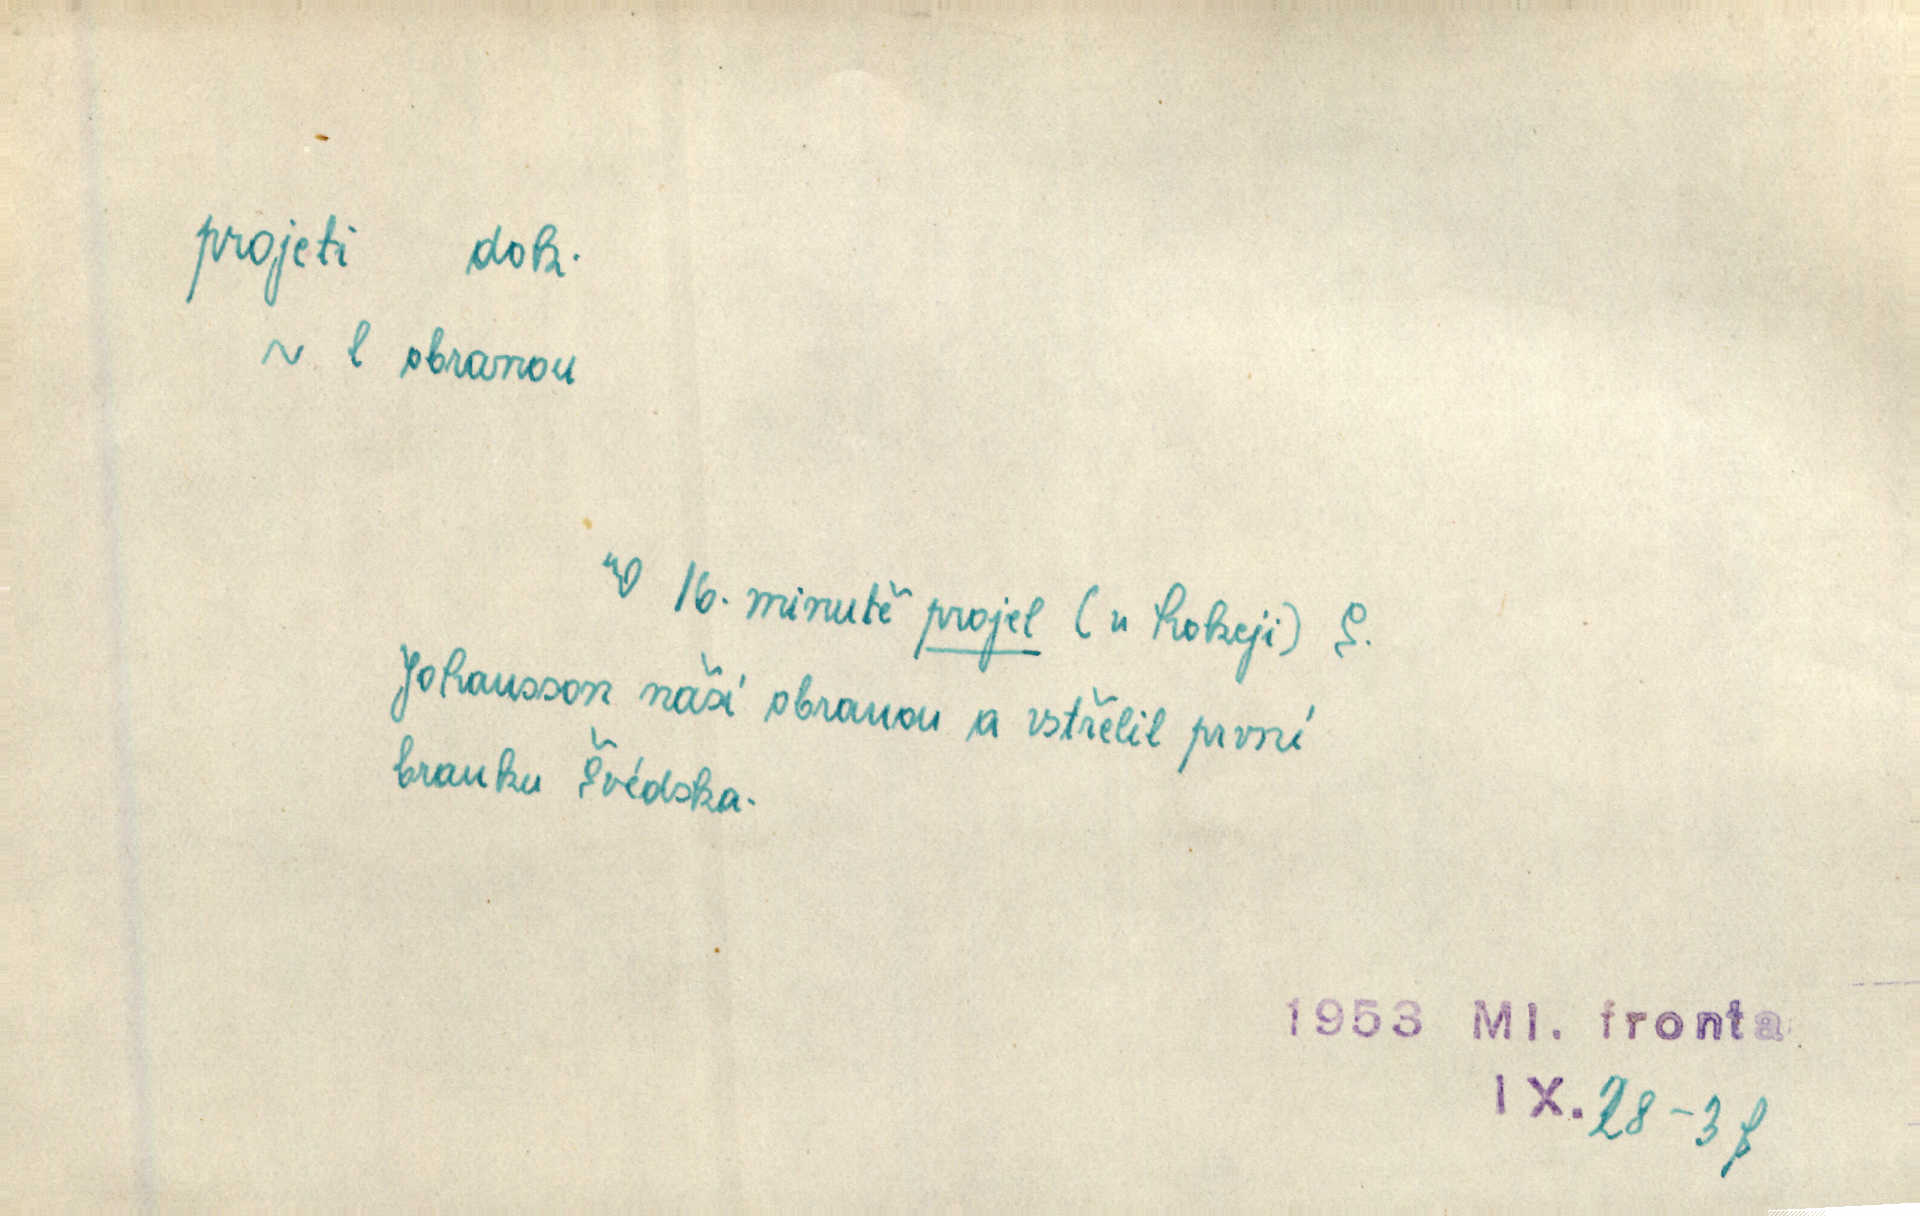 projeti dok.
~ l obranou
V 16. minutě projel (v hokeji) S.
Johansson naší obranou a vstřelil první
branku Švédska.
1953 Ml. fronta
IX. 28-3